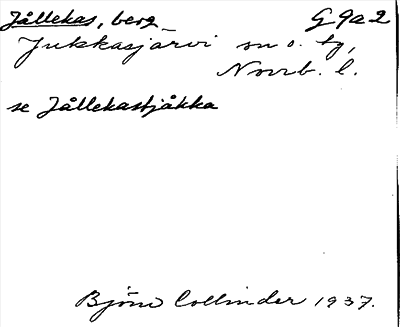 Jållekas, berg G 9a2
Jukkasjärvi sn o. tg,
Norrb. l.
se Jållekastjåkka
Björn Collinder 1937.